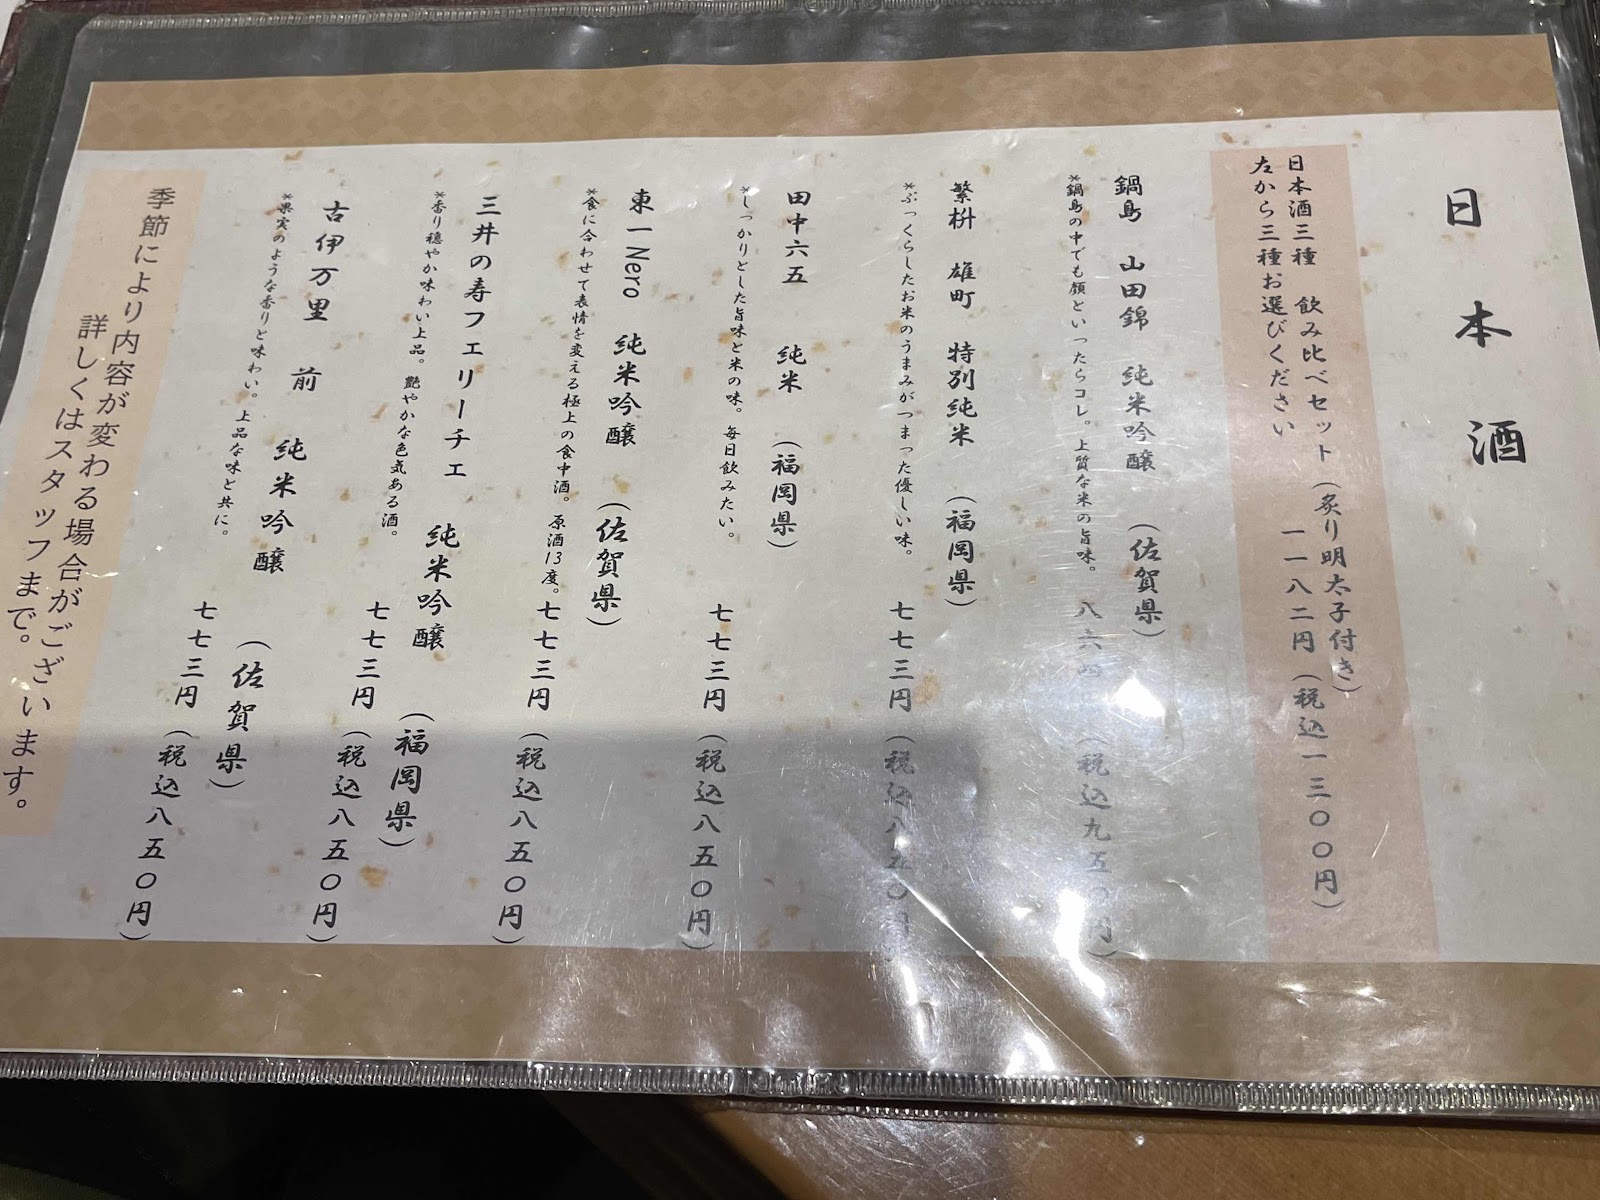 日本酒
日本酒三種 飲み比べセット(炙り明太子付き)
左から三種お選びください 一一八二円(税込一三〇〇円)
鍋島 山田錦 純米吟醸 (佐賀県)
*鍋島の中でも顔といったらコレ。上質な米の旨味。 八六四 (税込九五〇円)
繁桝 雄町 特別純米 (福岡県)
*ぷっくらしたお米のうまみがつまった優しい味。 七七三円(税込八五〇円)
田中六五 純米 (福岡県)
*しっかりとした旨味と米の味。毎日飲みたい。 七七三円(税込八五〇円)
東一Nero 純米吟醸 (佐賀県)
*食に合わせて表情を変える極上の食中酒。原酒13度。 七七三円(税込八五〇円)
三井の寿フェリーチェ 純米吟醸 (福岡県)
*香り穏やか味わい上品。艶やかな色気ある酒。 七七三円(税込八五〇円)
古伊万里 前 純米吟醸 (佐賀県)
*果実のような香りと味わい。上品な味と共に。 七七三円(税込八五〇円)
季節により内容が変わる場合がございます。
詳しくはスタッフまで。